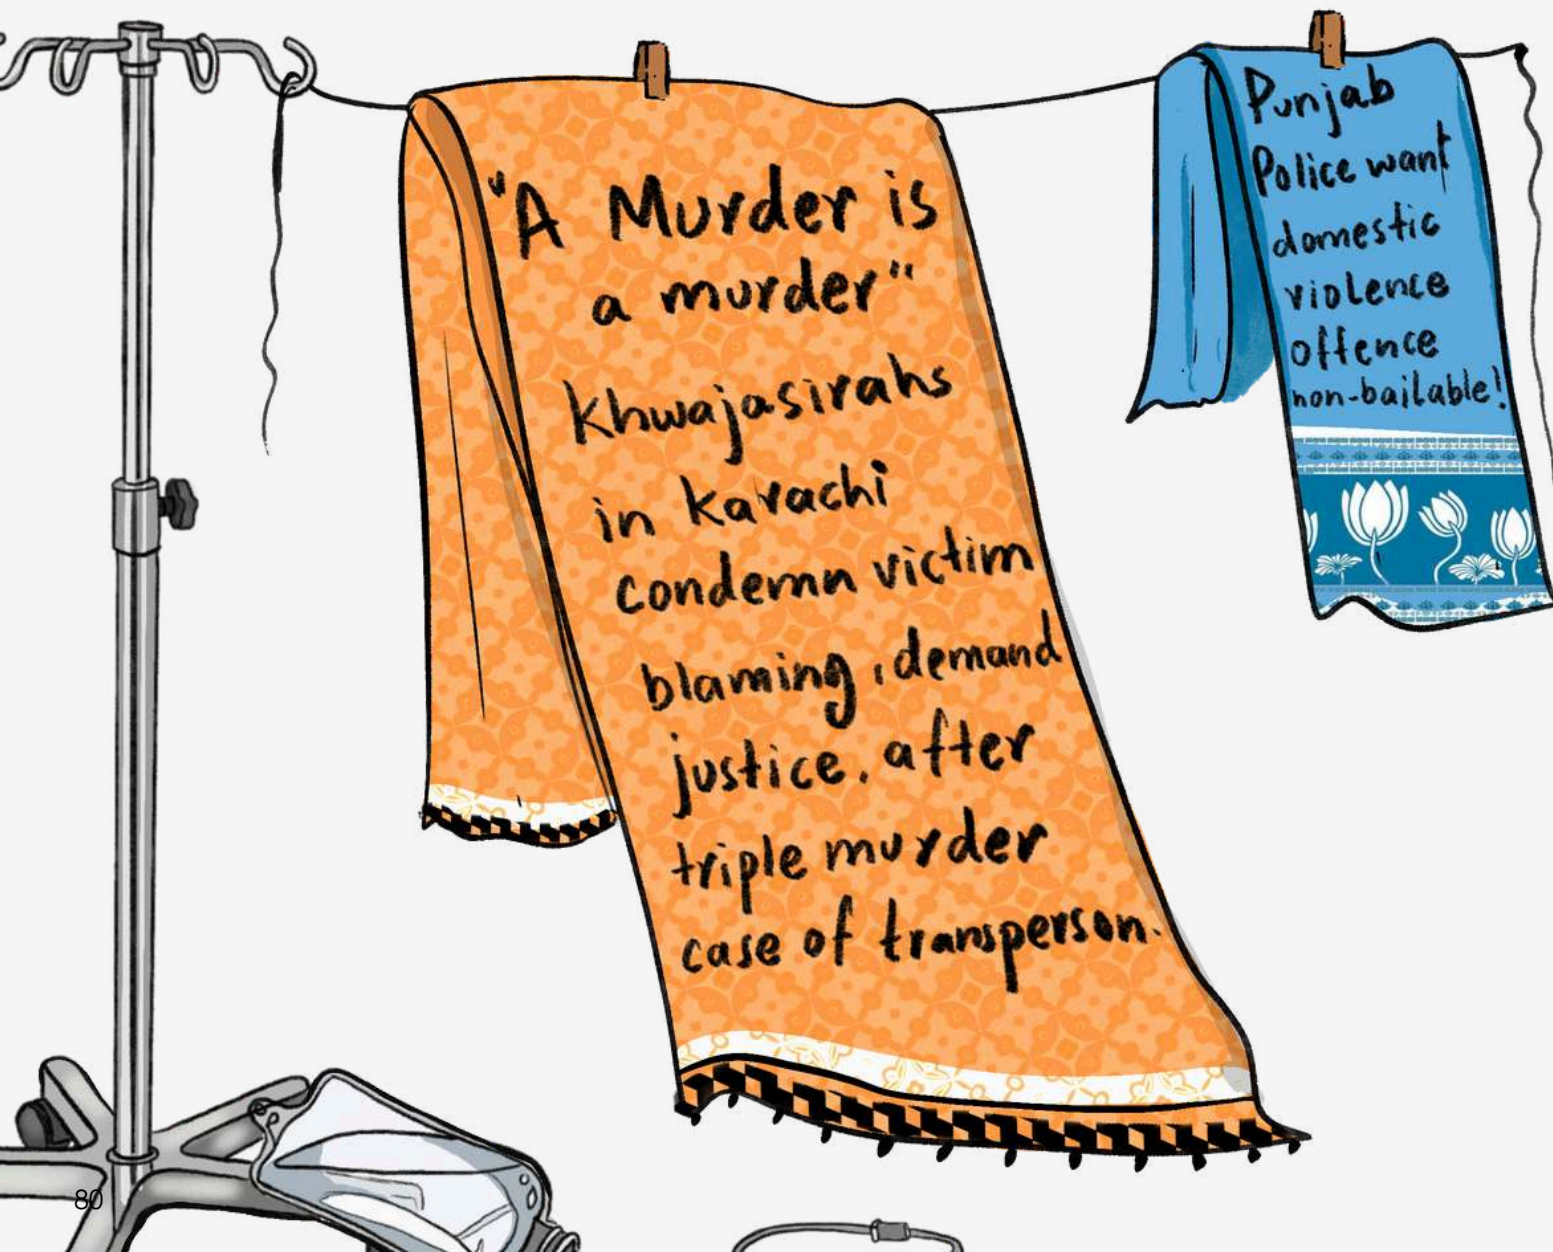 "A Murder is
a murder"
Khwajasirahs
in Karachi
condemn victim
blaming, demand
justice. after
triple murder
case of transperson.
Punjab
Police want
domestic
violence
offence
non-bailable!
80